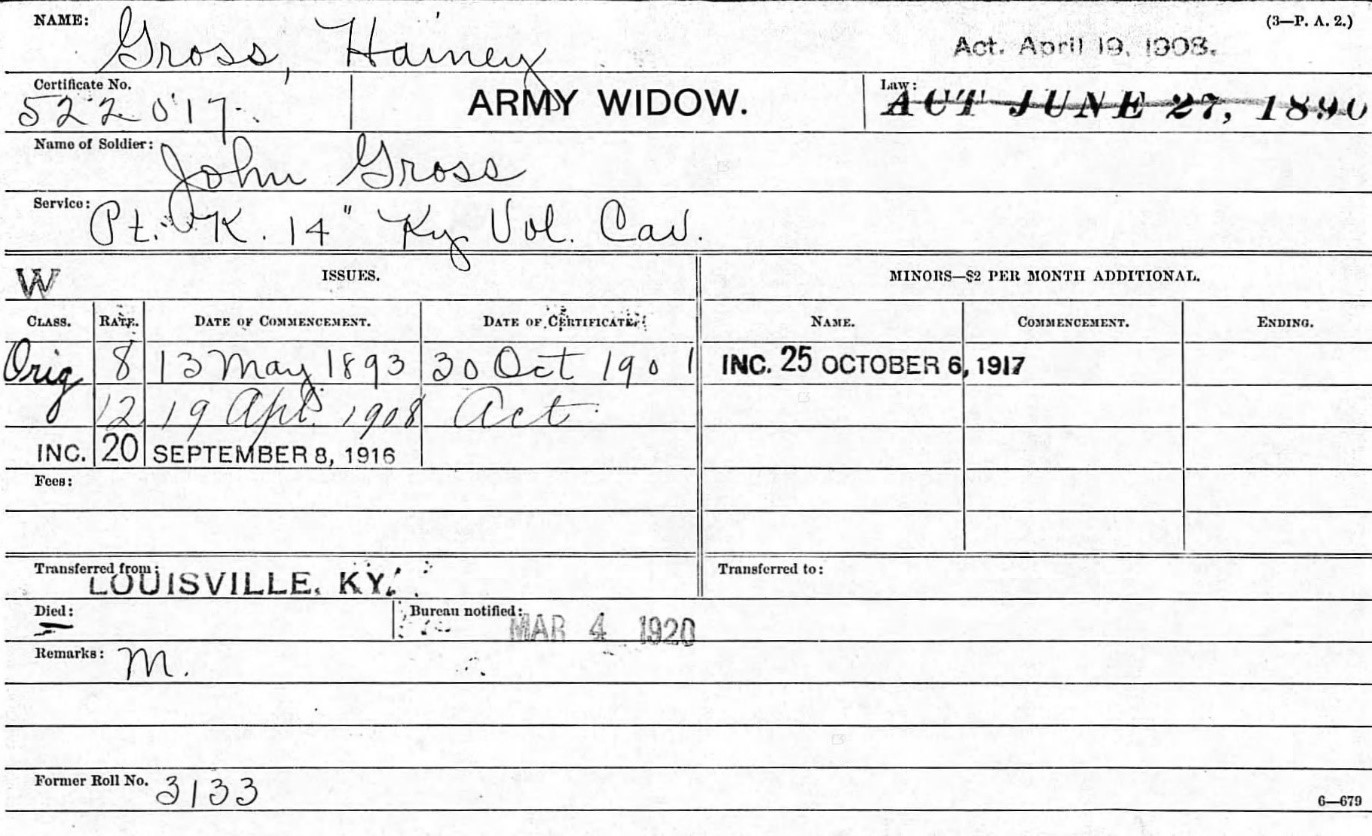 NAME: (3—P. A. 2.)
Gross, Hainey Act. April 19, 1908.
Certificate No. ARMY WIDOW. Law:
522017. ACT JUNE 27, 1890
Name of Soldier:
John Gross
Service:
Pt. "K. 14" Ky Vol. Cav.
W ISSUES. MINORS—$2 PER MONTH ADDITIONAL.
CLASS. RATE. DATE OF COMMENCEMENT. DATE OF CERTIFICATE. NAME. COMMENCEMENT. ENDING.
Orig 8 13 May 1893 30 Oct 1901 INC. 25 OCTOBER 6, 1917
12 19 Apl. 1908 Act
INC. 20 SEPTEMBER 8, 1916
Fees:
Transferred from: Transferred to:
LOUISVILLE, KY.
Died: Bureau notified:
MAR 4 1920
Remarks: M.
Former Roll No. 3133
6—679